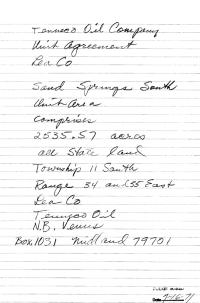 Tenneco Oil Company
Unit Agreement
Lea Co
Sand Springs South
Unit Area
comprises
2535.57 acres
all State land
Township 11 South
Range 34 and 35 East
Lea Co
Tenneco Oil
N.B. Venus
Box 1031 Midland 79701
7-16-71